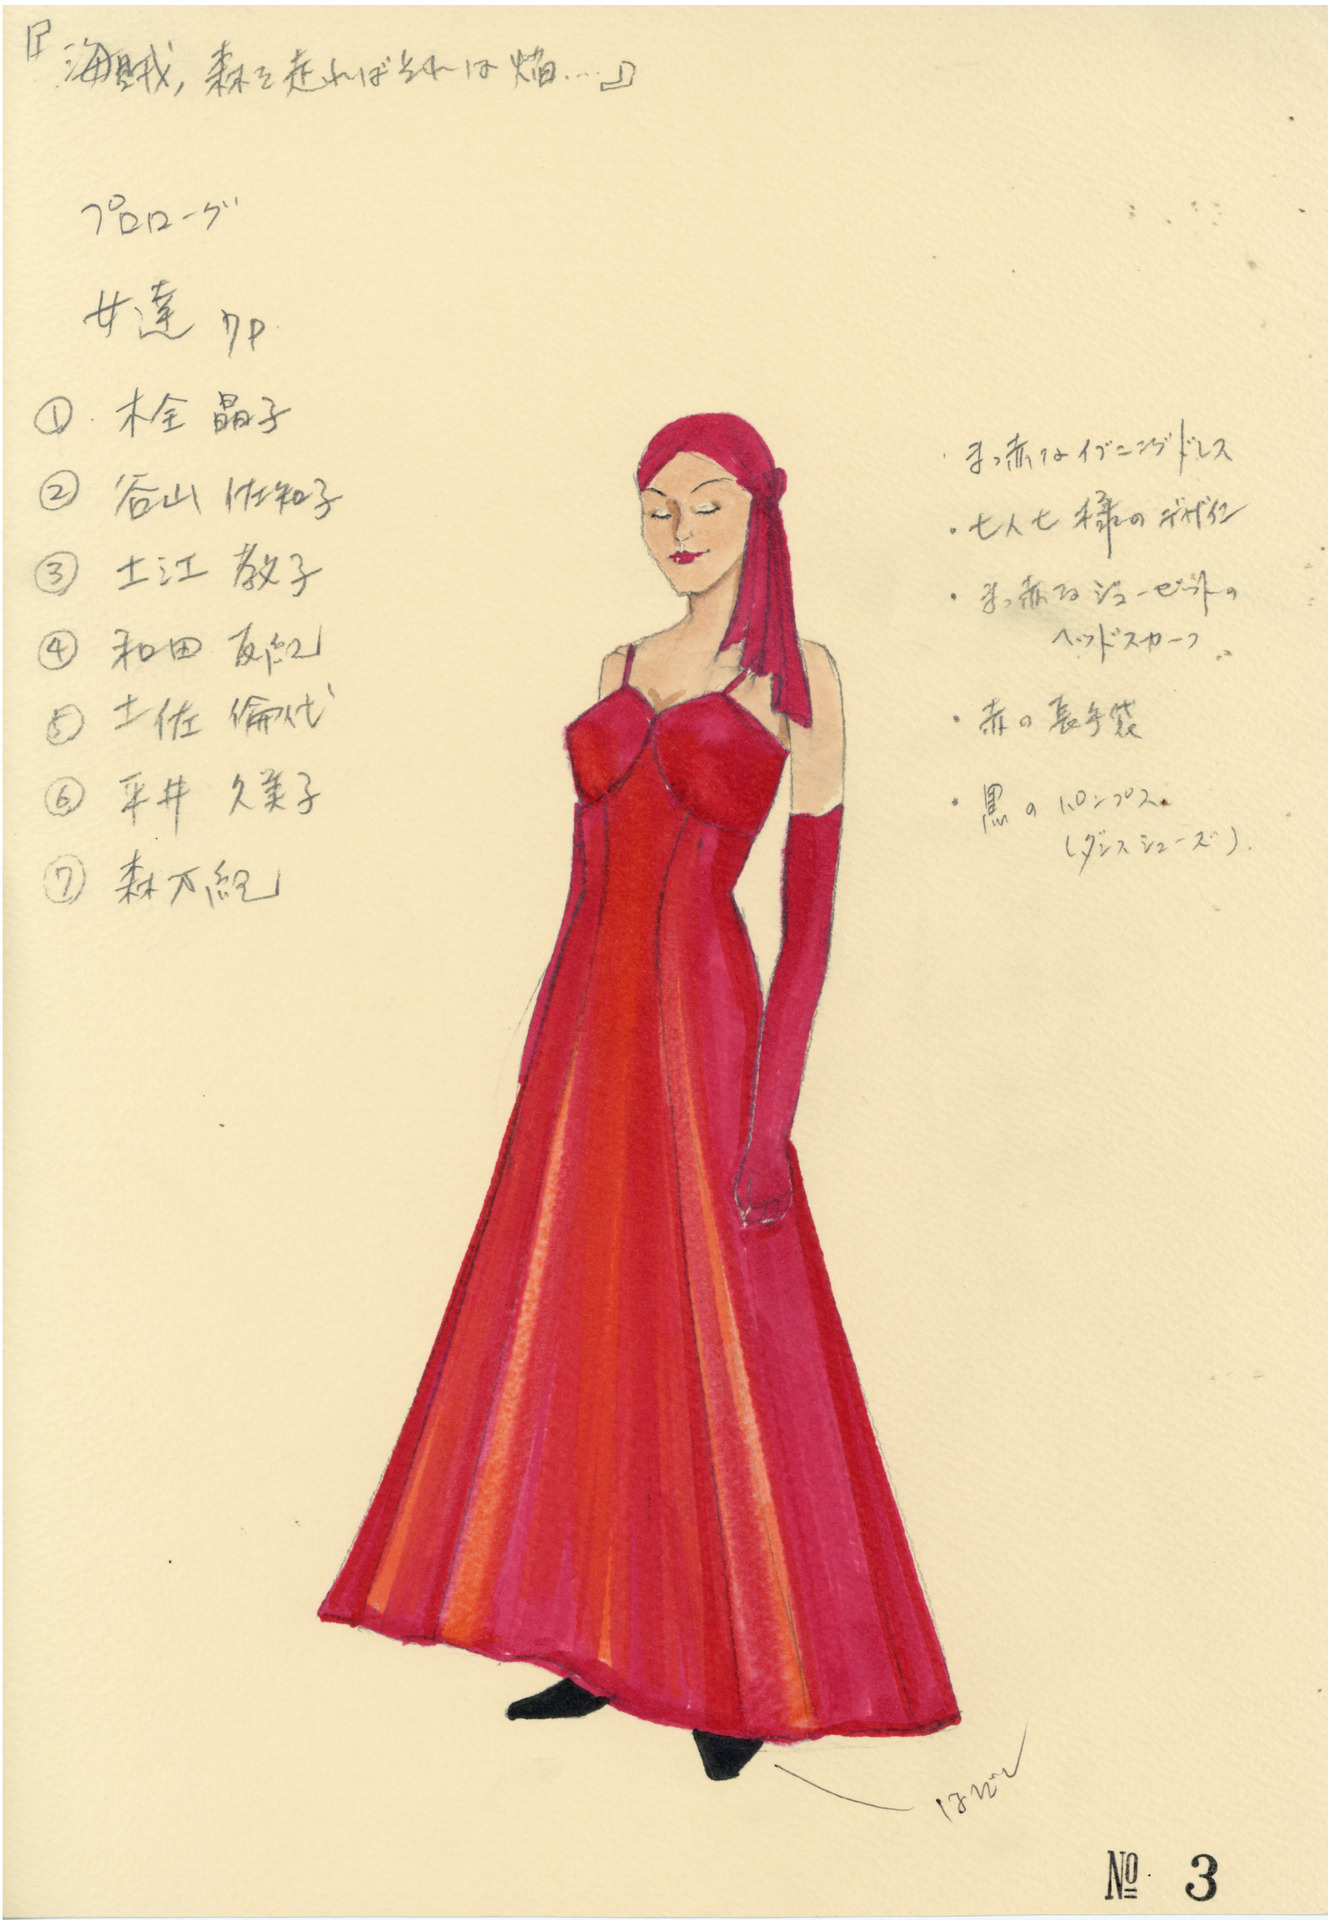 『海賊,森を走ればそれは焔…』
プロローグ
女達 7P
① 木全 晶子
② 谷山 佐知子
③ 土江 教子
④ 和田 友紀
⑤ 土佐 倫代
⑥ 平井 久美子
⑦ 森 万紀
・まっ赤なイブニングドレス
・七人七様のデザイン
・まっ赤なジョーゼットの
ヘッドスカーフ
・赤の長手袋
・黒のパンプス.
(ダンスシューズ).
No. 3